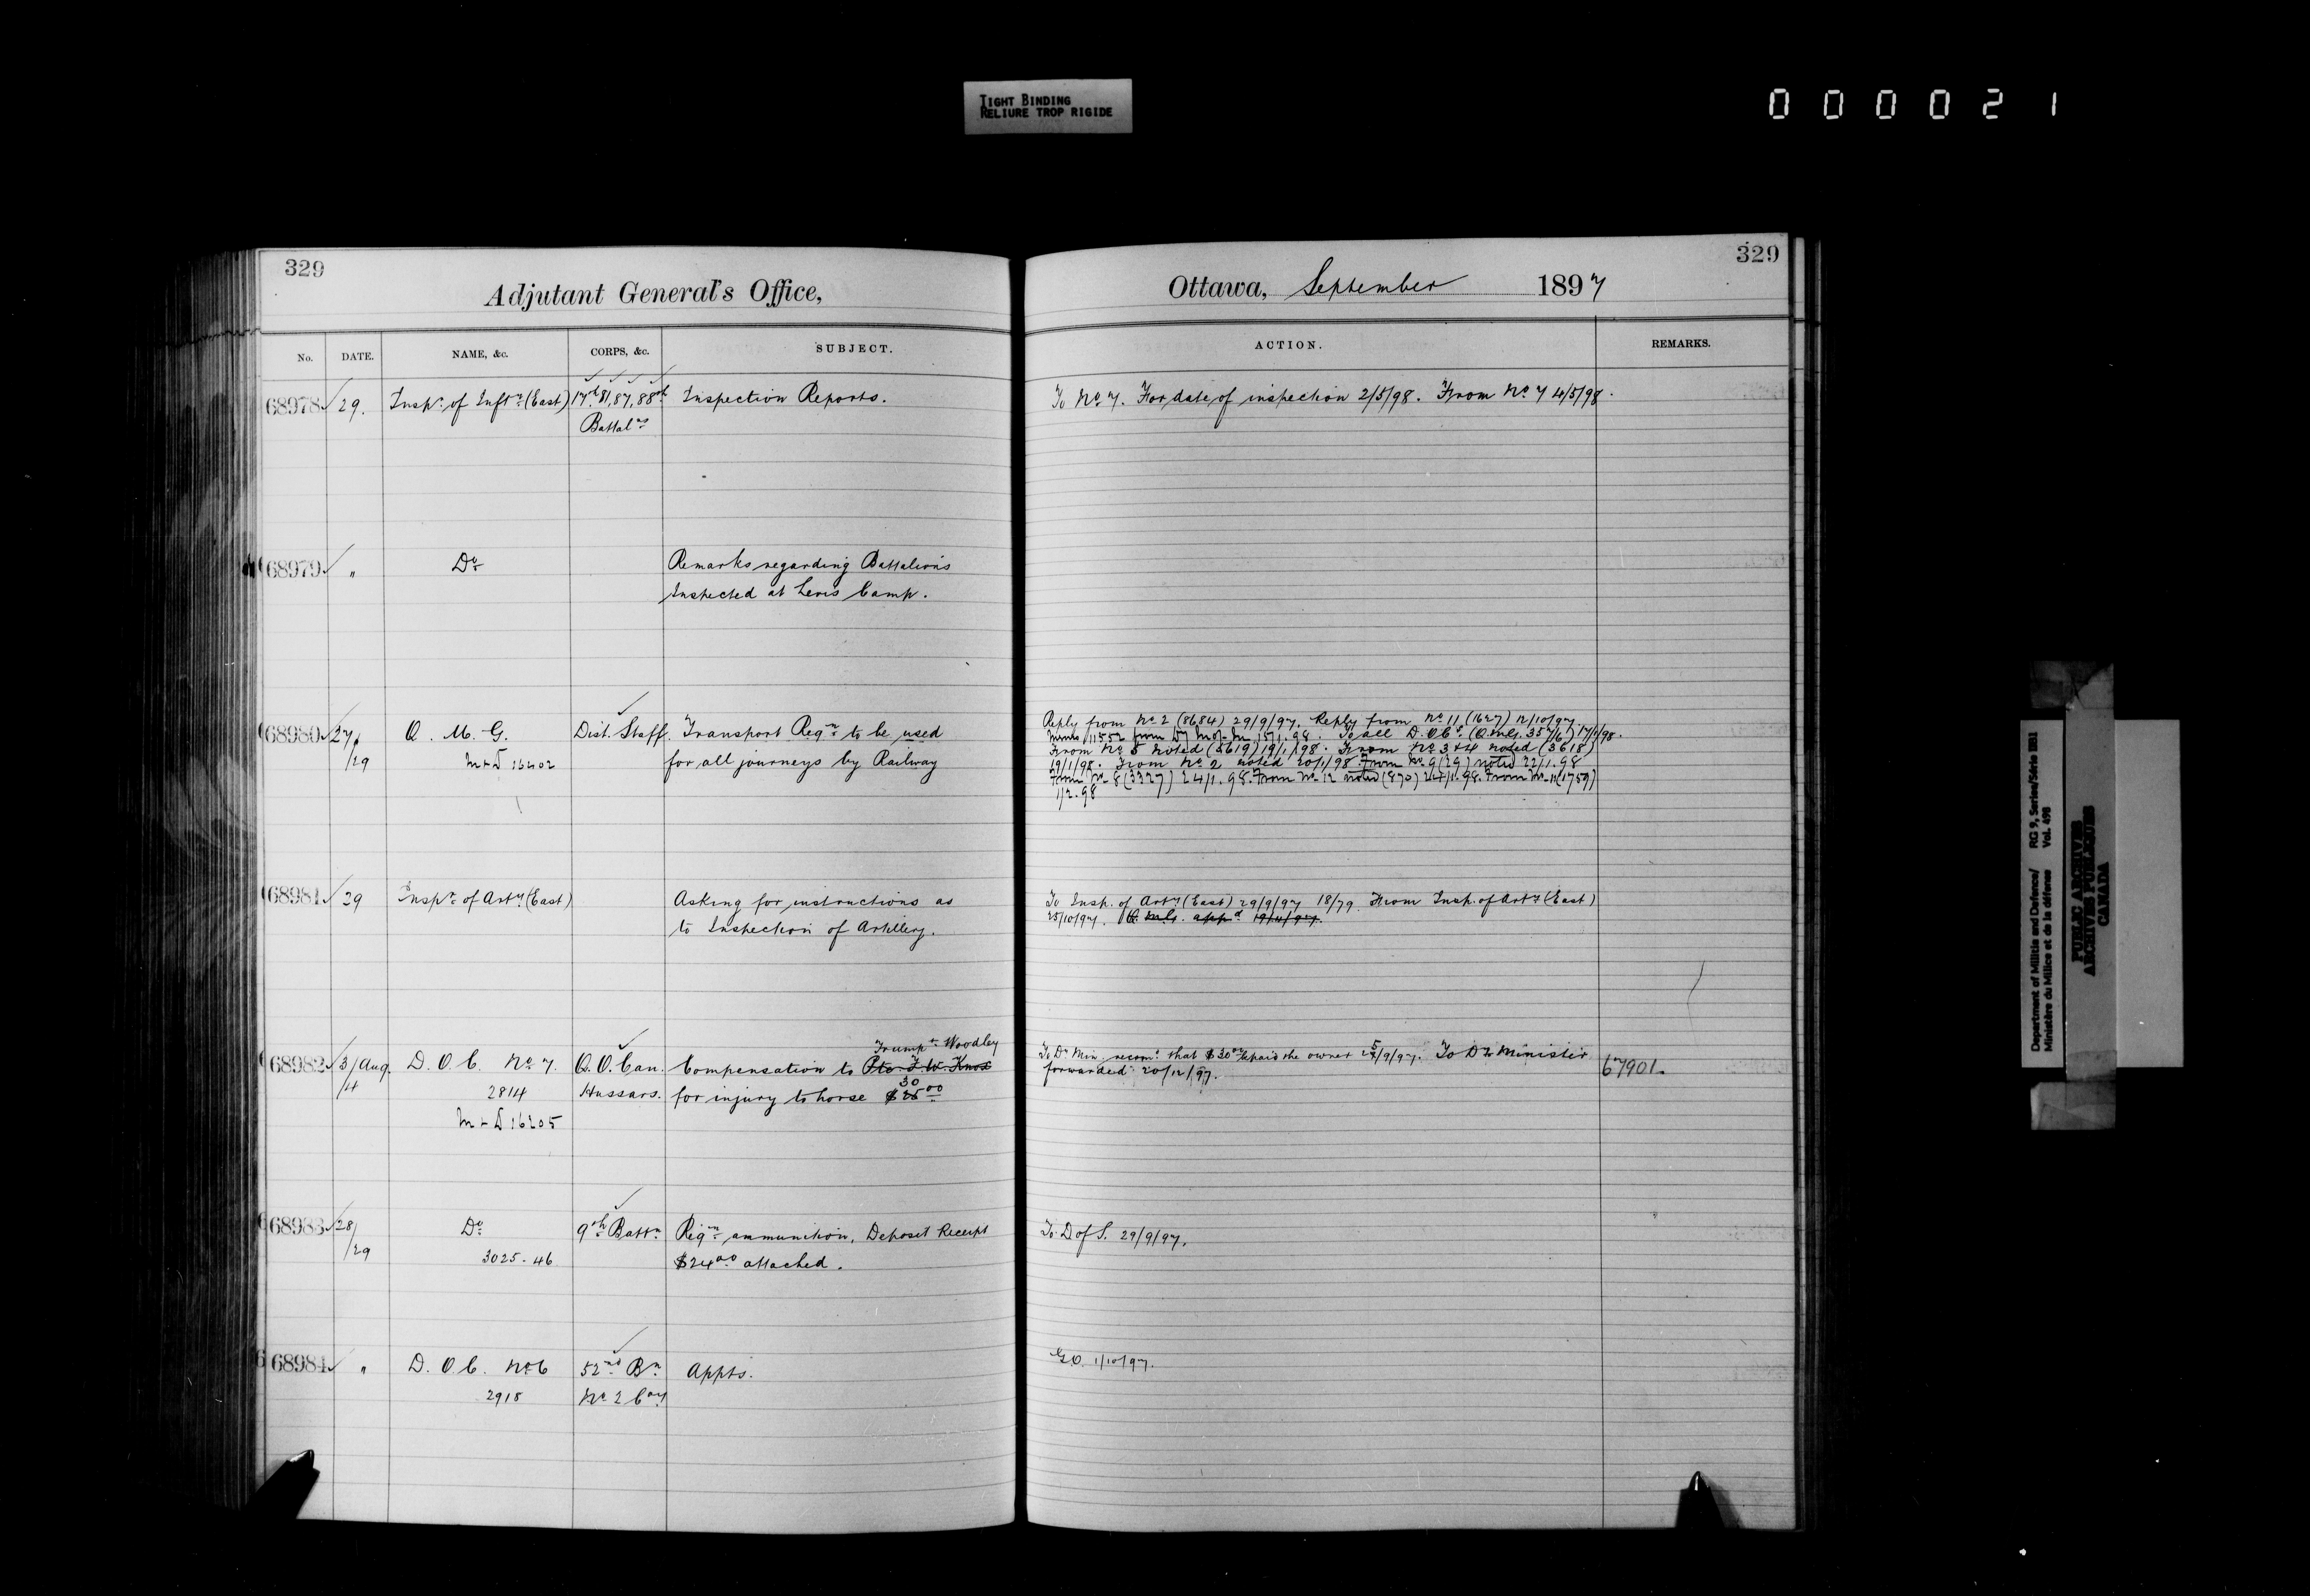 TIGHT BINDING
RELIURE TROP RIGIDE
000021
329
Adjutant General's Office,
No. DATE. NAME, &c. CORPS, &c. SUBJECT.
68978 29. Inspr. of Inftry. (East) 17th 81, 87, 88th Inspection Reports.
Battalns
68979 " Do Remarks regarding Battalions
Inspected at Levis Camp.
68980 27/ Q. M. G. Dist. Staff. Transport Reqn to be used
/29 M+D 16402 for all journeys by Railway
68981 29 Inspr. of Arty (East) Asking for instructions as
to Inspection of Artillery.
Trumpr Woodley
68982 3/Aug. D. O. C. No 7. Q. O. Can. Compensation to Pte F W Knox
30
/4 2814 Hussars. for injury to horse $25.00
M+D 16205
68983 28/ Do 9th Battn Reqn ammunition, Deposit Receipt
/29 3025.46 $24.00 attached.
68984 " D. O. C. No 6 52nd Bn Appts.
2918 No 2 Coy
329
Ottawa, September 1897
ACTION. REMARKS.
To No 7. For date of inspection 2/5/98. From No 7 4/5/98.
Reply from No 2 (8684) 29/9/97. Reply from No 11 (1627) 12/10/97.
Minute 11552 from D M of M 15/1.98. To all D.O.Cs. 17/1/98.
From No 5 noted (5619) 19/1/98. From No 3+4 noted (3618)
19/1/98. From No 2 noted 20/1/98 From No 9 (29) noted 22/1.98
From No 8 (3327) 24/1.98. From No 12 noted (870) 24/1.98. From No 11 (1759)
1/2.98
To Insp. of Arty (East) 29/9/97 18/79. From Insp. of Arty (East)
25/10/97. Q. M. G. appd 19/11/97.
To Dr Min. recomg that $30.00 be paid the owner 25/9/97. To Dr Minister
forwarded 20/12/97. 67901.
To D of S. 29/9/97.
G.O. 1/10/97.
Department of Militia and Defence/ RG 9, Series/Série IIB1
Ministère du Milice et de la défence Vol. 498
PUBLIC ARCHIVES
ARCHIVES PUBLIQUES
CANADA